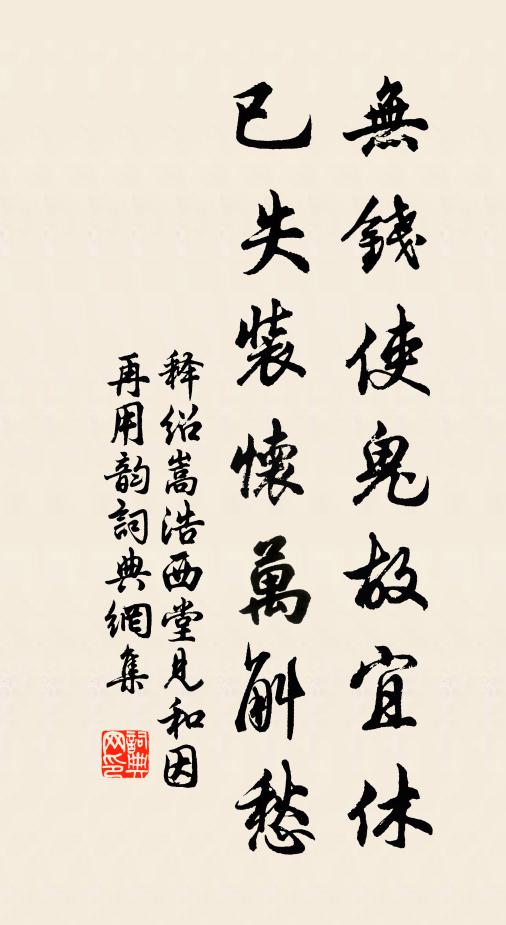 無錢使鬼故宜休
已失裝懷萬斛愁
释绍嵩浩西堂見和因
再用韵詞典網集
詞典
网印